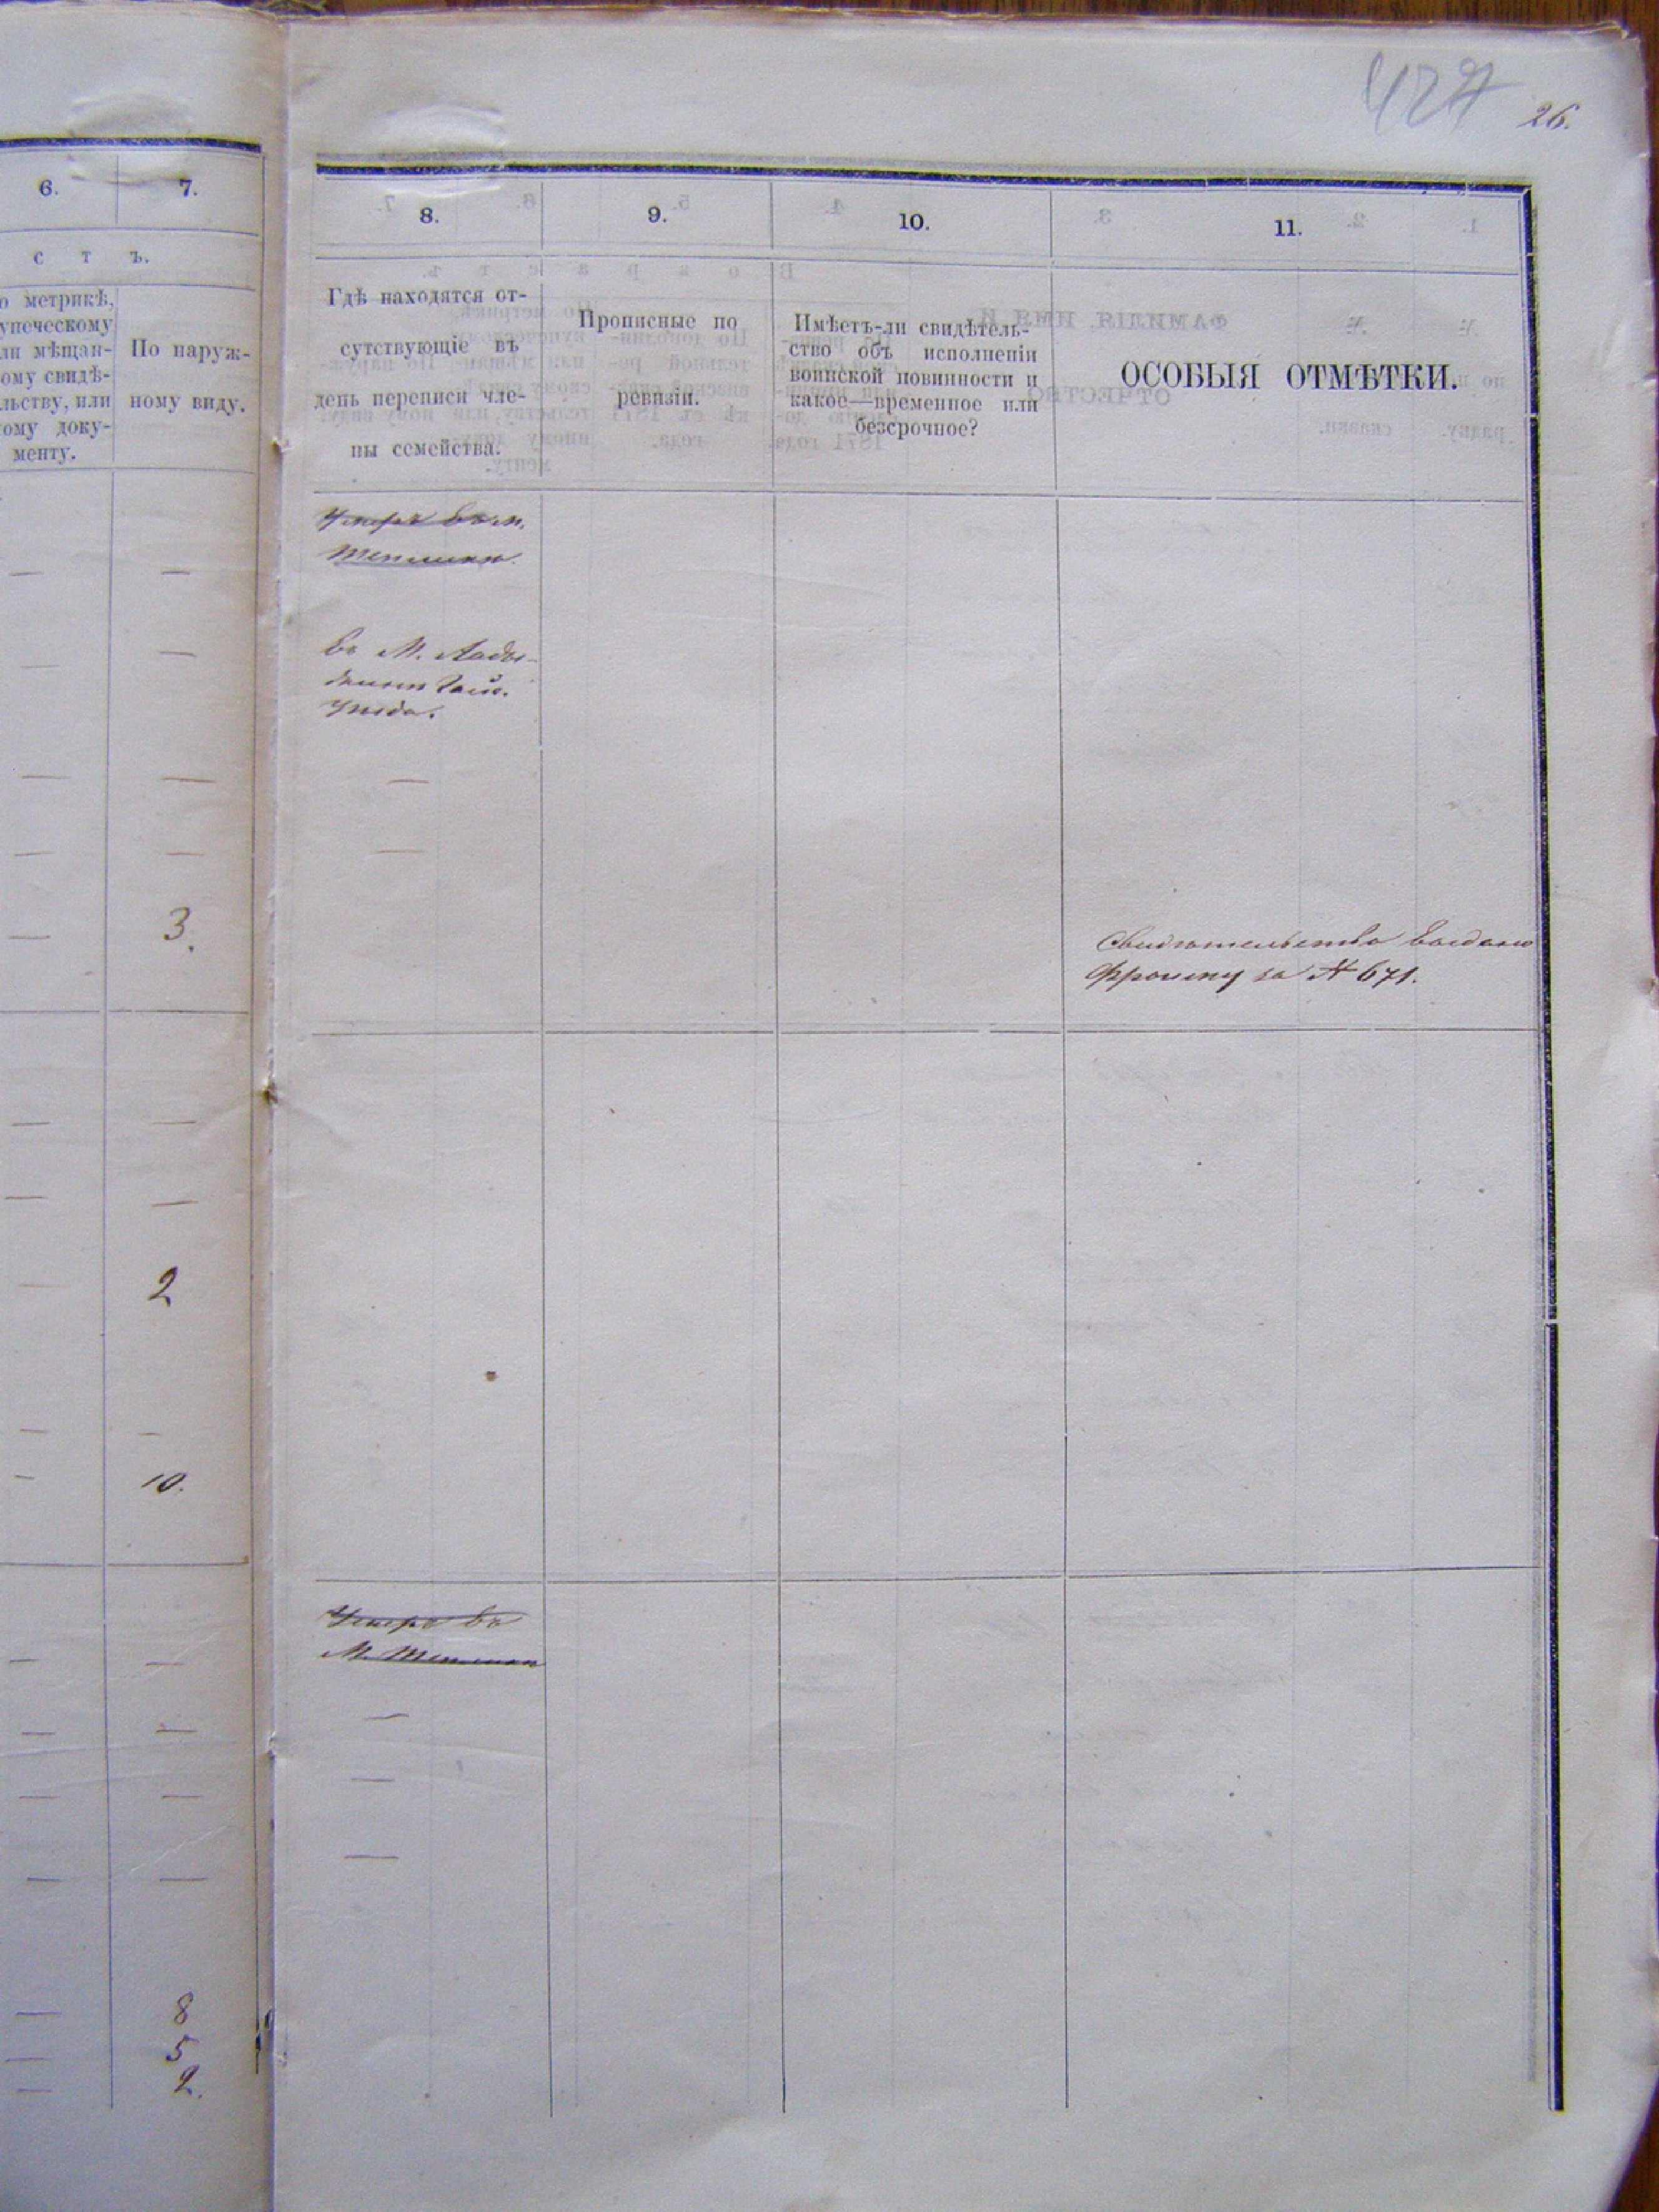 427 26.
6. 7.
с т ъ.
о метрикѣ,
упеческому
ли мѣщан-
ому свидѣ-
льству, или
ому доку-
менту.
По наруж-
ному виду.
— —
— —
— —
— —
— 3.
— —
— —
— 2
— —
— 10.
— —
— —
— —
— —
— 8
— 5
— 2.
8. 9. 10. 11.
Гдѣ находятся от-
сутствующіе въ
день переписи чле-
ны семейства.
Прописные по
ревизіи.
Имѣетъ-ли свидѣтель-
ство объ исполненіи
воинской повинности и
какое—временное или
безсрочное?
ОСОБЫЯ ОТМѢТКИ.
Умеръ въ м.
Въ М.
уѣзда.
—
—
Свидѣтельство выдано
за № 671.
Умеръ въ
М.
—
—
—